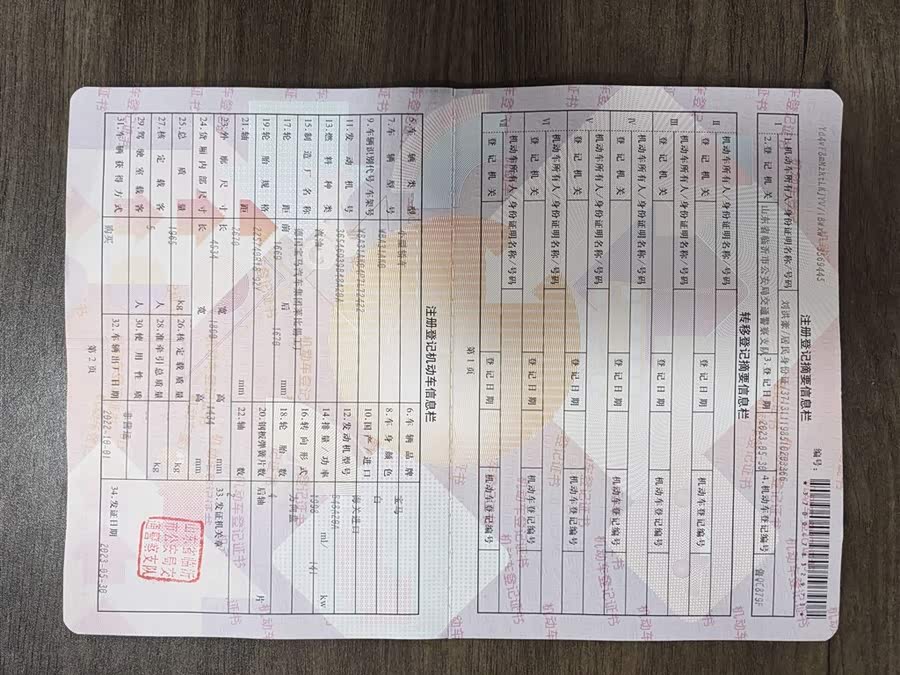 编号:
注册登记摘要信息栏
Ⅰ
1.机动车所有人/身份证明名称/号码 刘洪豪/居民身份证
2.登记机关 山东省临沂市公安局交通警察支队 3.登记日期 2023-05-30 4.机动车登记编号
转移登记摘要信息栏
Ⅱ 机动车所有人/身份证明名称/号码
登记机关 登记日期 机动车登记编号
Ⅲ 机动车所有人/身份证明名称/号码
登记机关 登记日期 机动车登记编号
Ⅳ 机动车所有人/身份证明名称/号码
登记机关 登记日期 机动车登记编号
Ⅴ 机动车所有人/身份证明名称/号码
登记机关 登记日期 机动车登记编号
Ⅵ 机动车所有人/身份证明名称/号码
登记机关 登记日期 机动车登记编号
Ⅶ 机动车所有人/身份证明名称/号码
登记机关 登记日期 机动车登记编号
第1页
注册登记机动车信息栏
5.车辆类型 小型轿车 6.车辆品牌 宝马
7.车辆型号 8.车身颜色 白
9.车辆识别代号/车架号 10.国产/进口 海关进口
11.发动机号 12.发动机型号
13.燃料种类 汽油 14.排量/功率 1998 ml/ 141 kw
15.制造厂名称 德国宝马汽车集团莱比锡工厂 16.转向形式 方向盘
17.轮距 前 后 mm 18.轮胎数 4
19.轮胎规格 20.钢板弹簧片数 后轴 片
21.轴距 mm 22.轴数 2
23.外廓尺寸 长 宽 高 1434 mm 33.发证机关章
24.货厢内部尺寸 长 宽 高 mm
25.总质量 1965 kg 26.核定载质量 kg
27.核定载客 5 人 28.准牵引总质量 kg
29.驾驶室载客 人 30.使用性质 非营运
31.车辆获得方式 购买 32.车辆出厂日期 2022-10-01 34.发证日期 2023-05-30
第2页
山东省临沂
市公安局交
通警察支队